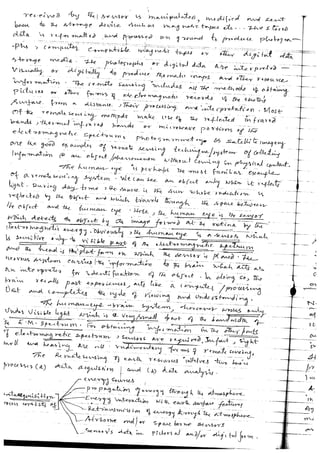 received by the sensor is manipulated, modified and sent
back to the storage device such as magnatic tapes etc. The stored
data is reformatted and processed on ground to produce photogra-
phs, computer compatible magnatic tapes or other digital data
storage media. The photographs or digital data are interpreted
visually or digitally to produce thematic maps and other resource
information. The remote sensing includes all the methods of obtaining
pictures or other forms of electromagnetic records of the earth's
surface from a distance, their processing and interpretation. Most
of the remote sensing methods make use of the reflected infrared
bands, thermal infrared bands or microwave portions of the
electromagnetic spectrum. Photogrammetry & satellite imagery
are the good examples of remote sensing technique/system of collecting
information of an object/phenomenon without coming in physical contact.
The human eye is perhaps the most familiar example
of a remote sensing system. We can see an object only when it reflects
light. During day time the source is the sun whose radiation is
reflected by the object and which travels through the space between
the object and the human eye. Here, the human eye is the sensor
which detects the object by the image formed at a retina by the
electromagnetic energy. Obviously, the human eye is a sensor which
is sensitive only to visible part of the electromagnetic spectrum
and the head is the platform on which the sensor is placed. The
nervous system carries the information to the brain which acts as
an interpreter for identification of the object. In doing so, the
brain recalls past experiences, acts like a computer/processing
unit and completes the cycle of viewing and understanding.
The human eye-brain system, however works only
under visible light which is the very/small part of the bandwidth of
E-M-spectrum. For obtaining information in the other parts
of electromagnetic spectrum, sensors are required. In fact, sight
and hearing are all rudimentary forms of remote sensing.
The Remote sensing of earth resources involves two basic
processes (a) data acquisition and (b) data analysis.
energy sources
propagation of energy through the atmosphere.
Energy interaction with earth surface features
Retransmission of energy through the atmosphere.
Airborne and/or space borne sensors
Sensor's data in pictorial and/or digital form.